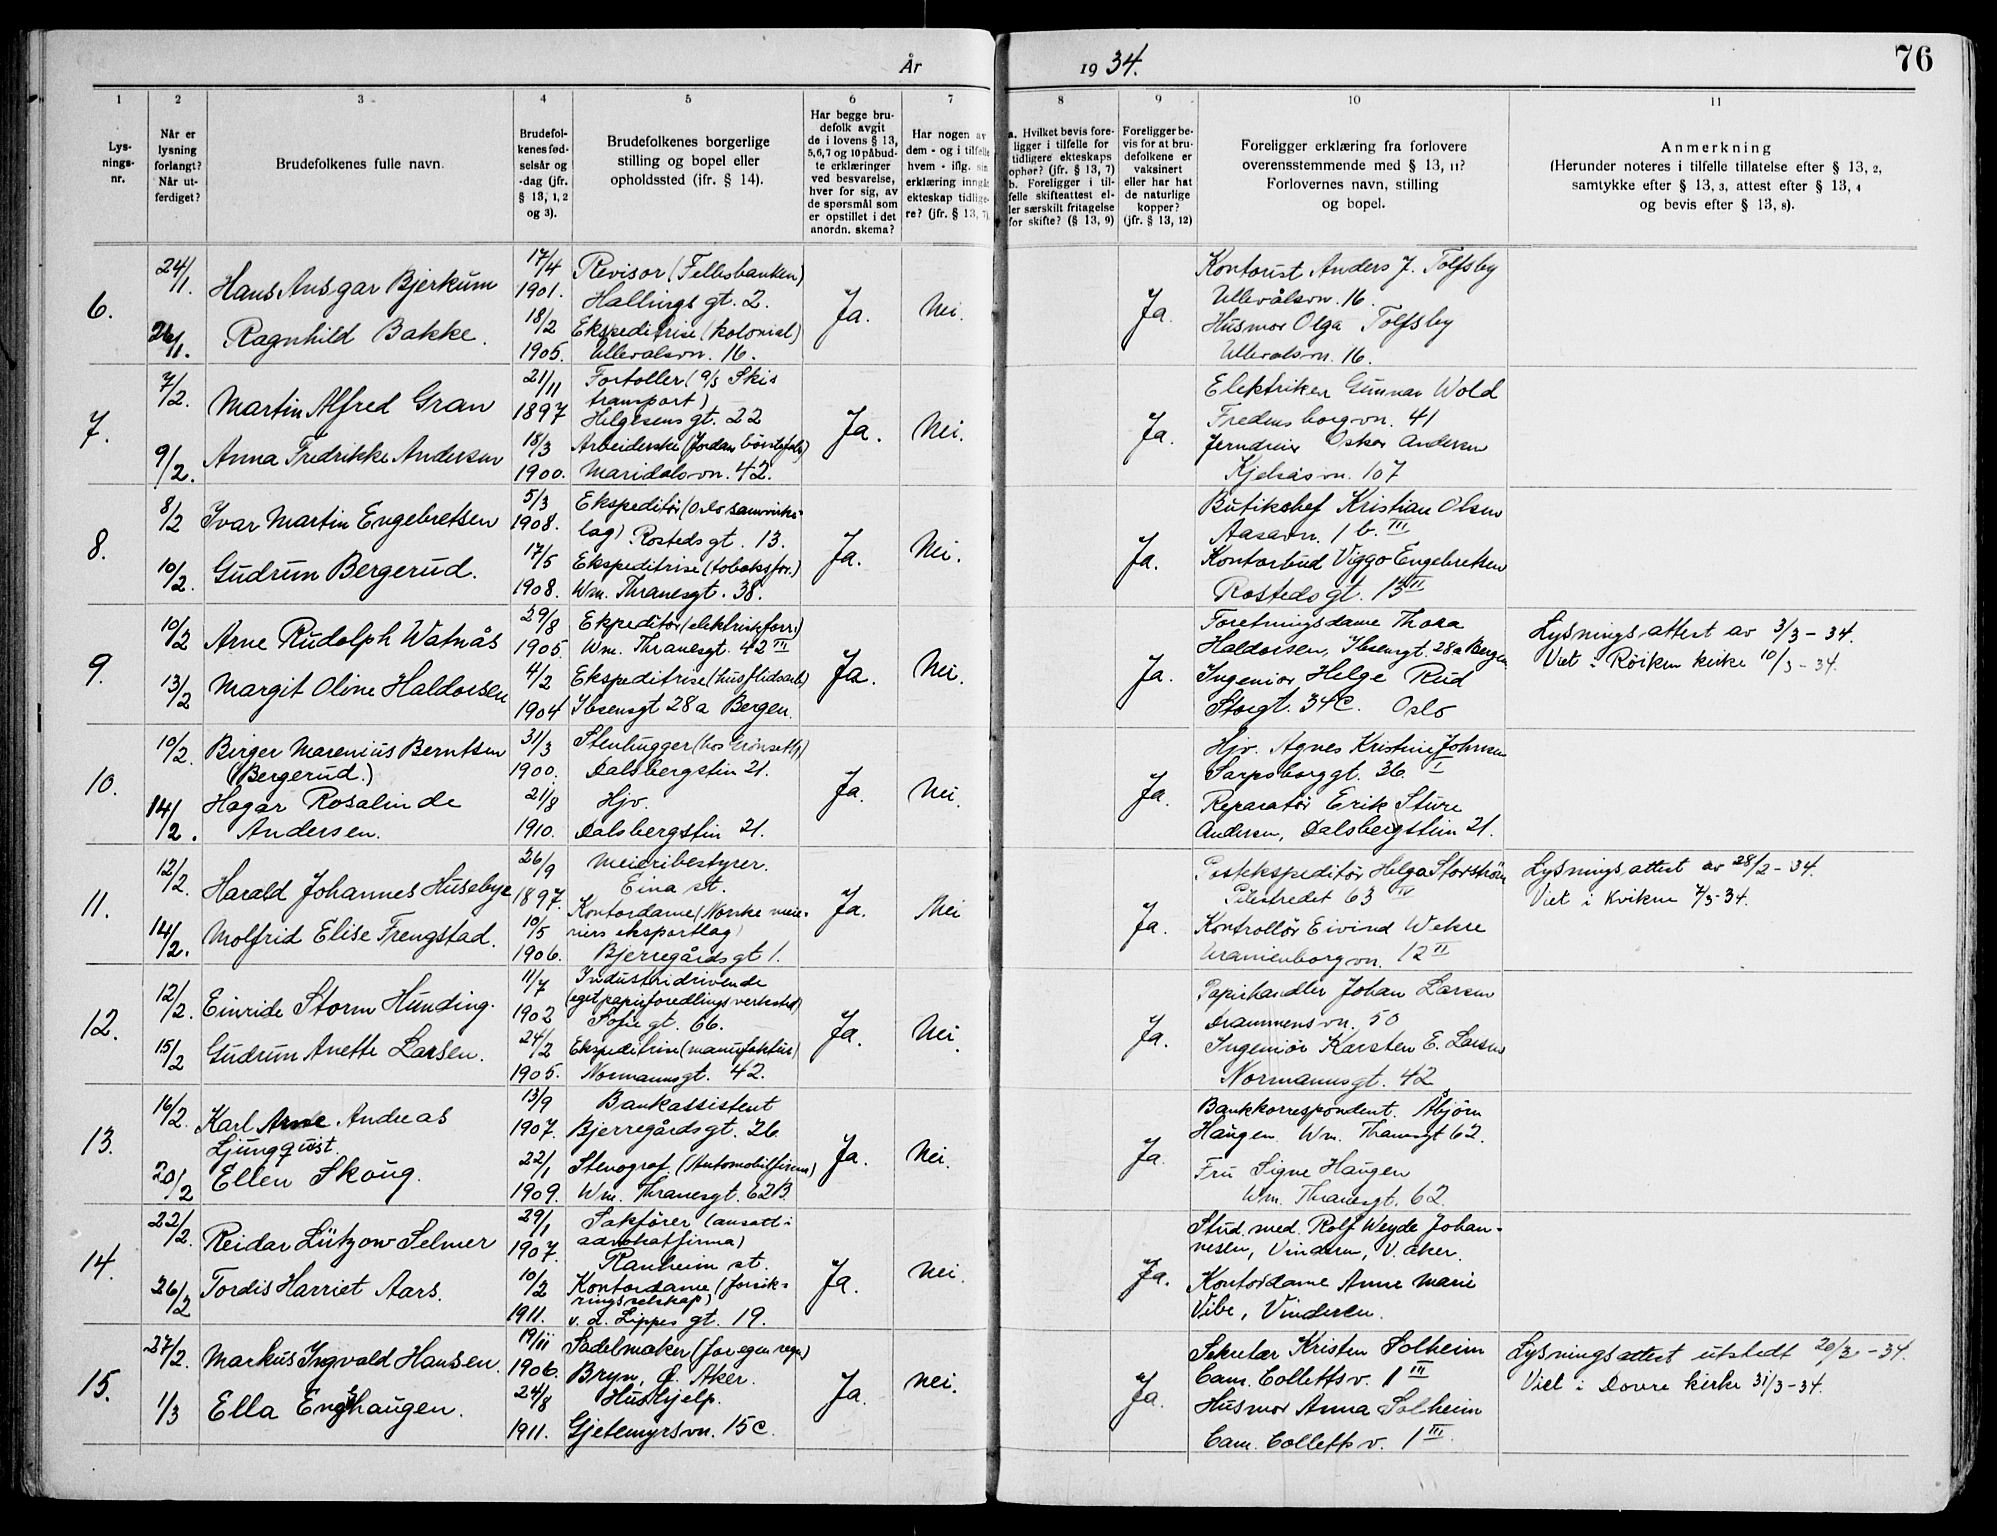 År 1934.
76
1 2 3 4 5 6 7 8 9 10 11
Lysnings-nr.
Når er lysning forlangt? Når utferdiget?
Brudefolkenes fulle navn.
Brudefolkenes fødselsår og -dag (jfr. § 13, 1, 2 og 3).
Brudefolkenes borgerlige stilling og bopel eller opholdssted (jfr. § 14).
Har begge brudefolk avgit de i lovens § 13, 5, 6, 7 og 10 påbudte erklæringer ved besvarelse, hver for sig, av de spørsmål som er opstillet i det anordn. skema?
Har nogen av dem - og i tilfelle hvem - iflg. sin erklæring inngått ekteskap tidligere? (jfr. § 13, 7)
a. Hvilket bevis foreligger i tilfelle for tidligere ekteskaps ophør? (jfr. § 13, 7)
b. Foreligger i tilfelle skifteattest eller særskilt fritagelse for skifte? (§ 13, 9)
Foreligger bevis for at brudefolkene er vaksinert eller har hat de naturlige kopper? (jfr. § 13, 12)
Foreligger erklæring fra forlovere overensstemmende med § 13, 11? Forlovernes navn, stilling og bopel.
Anmerkning
(Herunder noteres i tilfelle tillatelse efter § 13, 2, samtykke efter § 13, 3, attest efter § 13, 4 og bevis efter § 13, 8).
6.
24/1.
26/1.
Hans Ansgar Bjerkum
Ragnhild Bakke.
17/4
1901.
18/2
1905.
Revisor (Fellesbanken)
Hallings gt. 2.
Ekspeditrise (kolonial)
Ullevålsvn. 16.
Ja.
Nei.
Ja.
Kontorist Anders J. Tolfsby
Ullevålsvn. 16.
Husmor Olga Tolfsby
Ullevålsvn. 16.
7.
7/2.
9/2.
Martin Alfred Gran
Anna Fredrikke Andersen
21/11
1897
18/3
1900.
Fortoller (A/S Skis
transport)
Helgesens gt. 22
Arbeiderske (Jordan børstefab)
Maridalsvn. 42.
Ja.
Nei.
Ja.
Elektriker Gunnar Wold
Fredensborgvn. 41
Jerndreier Oskar Andersen
Kjelsåsvn. 107
8.
8/2
10/2.
Ivar Martin Engebretsen
Gudrun Bergerud.
5/3
1908.
17/5
1908.
Ekspeditør (Oslo samvirke-
lag) Rosteds gt. 13.
Ekspeditrise (tobaksfor.)
Wm. Thranesgt. 38.
Ja.
Nei.
Ja.
Butikchef Kristian Olsen
Aasavn. 1 b. III
Kontorbud Viggo Engebretsen
Rosteds gt. 13 III
9.
10/2
13/2
Arne Rudolph Watnås
Margit Oline Haldorsen
29/8
1905.
4/2
1904
Ekpeditør (elektrisk forr.)
Wm. Thranesgt. 42 III
Ekspeditrise (husflidsarb)
Ibsensgt 28a Bergen.
Ja.
Nei.
Ja.
Foretningsdame Thora
Haldorsen, Ibsensgt. 28a Bergen
Ingeniør Helge Rud
Storgt. 34C. Oslo
Lysnings attest av 3/3-34.
Viet i Røiken kirke 10/3-34.
10.
10/2.
14/2.
Birger Marenius Berntsen
(Bergerud.)
Hagar Rosalinde
Andersen.
31/3
1900.
21/8
1910.
Stenhugger (hos Grönseth)
Dalsbergstin 21.
Hjv.
Dalsbergstin 21.
Ja.
Nei.
Ja.
Hjv. Agnes Kristine Johnsen
Sarpsborggt. 36 I
Reparatør Erik Sture
Andersen, Dalsbergstien 21.
11.
12/2.
14/2.
Harald Johannes Husebye
Molfrid Elise Frengstad.
26/9
1897.
10/5
1906.
Meieribestyrer.
Eina st.
Kontordame (Norske meie-
riers eksportlag)
Bjerregårds gt 1.
Ja.
Nei
Ja.
Postekspeditør Helga Storström
Pilestredet 63 IV
Kontrollør Eivind Wehre
Uranienborgvn. 12 II
Lysnings attest av 28/2-34.
Viet i Kvikne 7/3-34.
12.
12/2.
15/2
Einride Storm Hunding.
Gudrun Anette Larsen.
11/7
1902
24/2
1905.
Industridrivende
(eget papirforedlings verksted)
Sofie gt. 66.
Ekspeditrise (manufaktur)
Normannsgt. 42.
Ja.
Nei.
Ja.
Papirhandler Johan Larsen
Drammensvn. 50
Ingeniør Karsten E. Larsen
Normannsgt. 42
13.
16/2.
20/2
Karl Arne Andreas
Ljungquist.
Ellen Skoug.
13/9
1907.
22/1
1909.
Bankassistent
Bjerregårdsgt. 26.
Stenograf. (Automobilfirma)
Wm. Thranesgt. 62B.
Ja.
Nei.
Ja.
Bankkorrespondent. Åbjörn
Haugen Wm. Thranesgt 62.
Fru Signe Haugen
Wm. Thranesgt. 62
14.
22/2.
26/2
Reidar Lützow Selmer
Tordis Harriet Aars.
29/1
1907.
10/2
1911.
Sakfører (ansatt i
advokatfirma)
Ranheim st.
Kontordame (forsik-
ringsselskap)
v. d. Lippes gt. 19.
Ja.
Nei.
Ja.
Stud. med. Rolf Weyde Johan-
nesen, Vinderen, V. Aker.
Kontordame Anne Marie
Vibe, Vinderen.
15.
27/2.
1/3
Markus Ingvald Hansen.
Ella Engshaugen.
19/11
1906.
24/8
1911.
Sadelmaker (for egen regn)
Bryn, Ø. Aker.
Hushjelp.
Gjetemyrsvn. 15c.
Ja.
Nei.
Ja.
Sekretær Kristen Solheim
Cam. Colletts v. 1 III
Husmor Anna Solheim
Cam. Colletts v. 1 III.
Lysningsattest utstedt 20/3-34.
Viet i Dovre kirke 31/3-34.